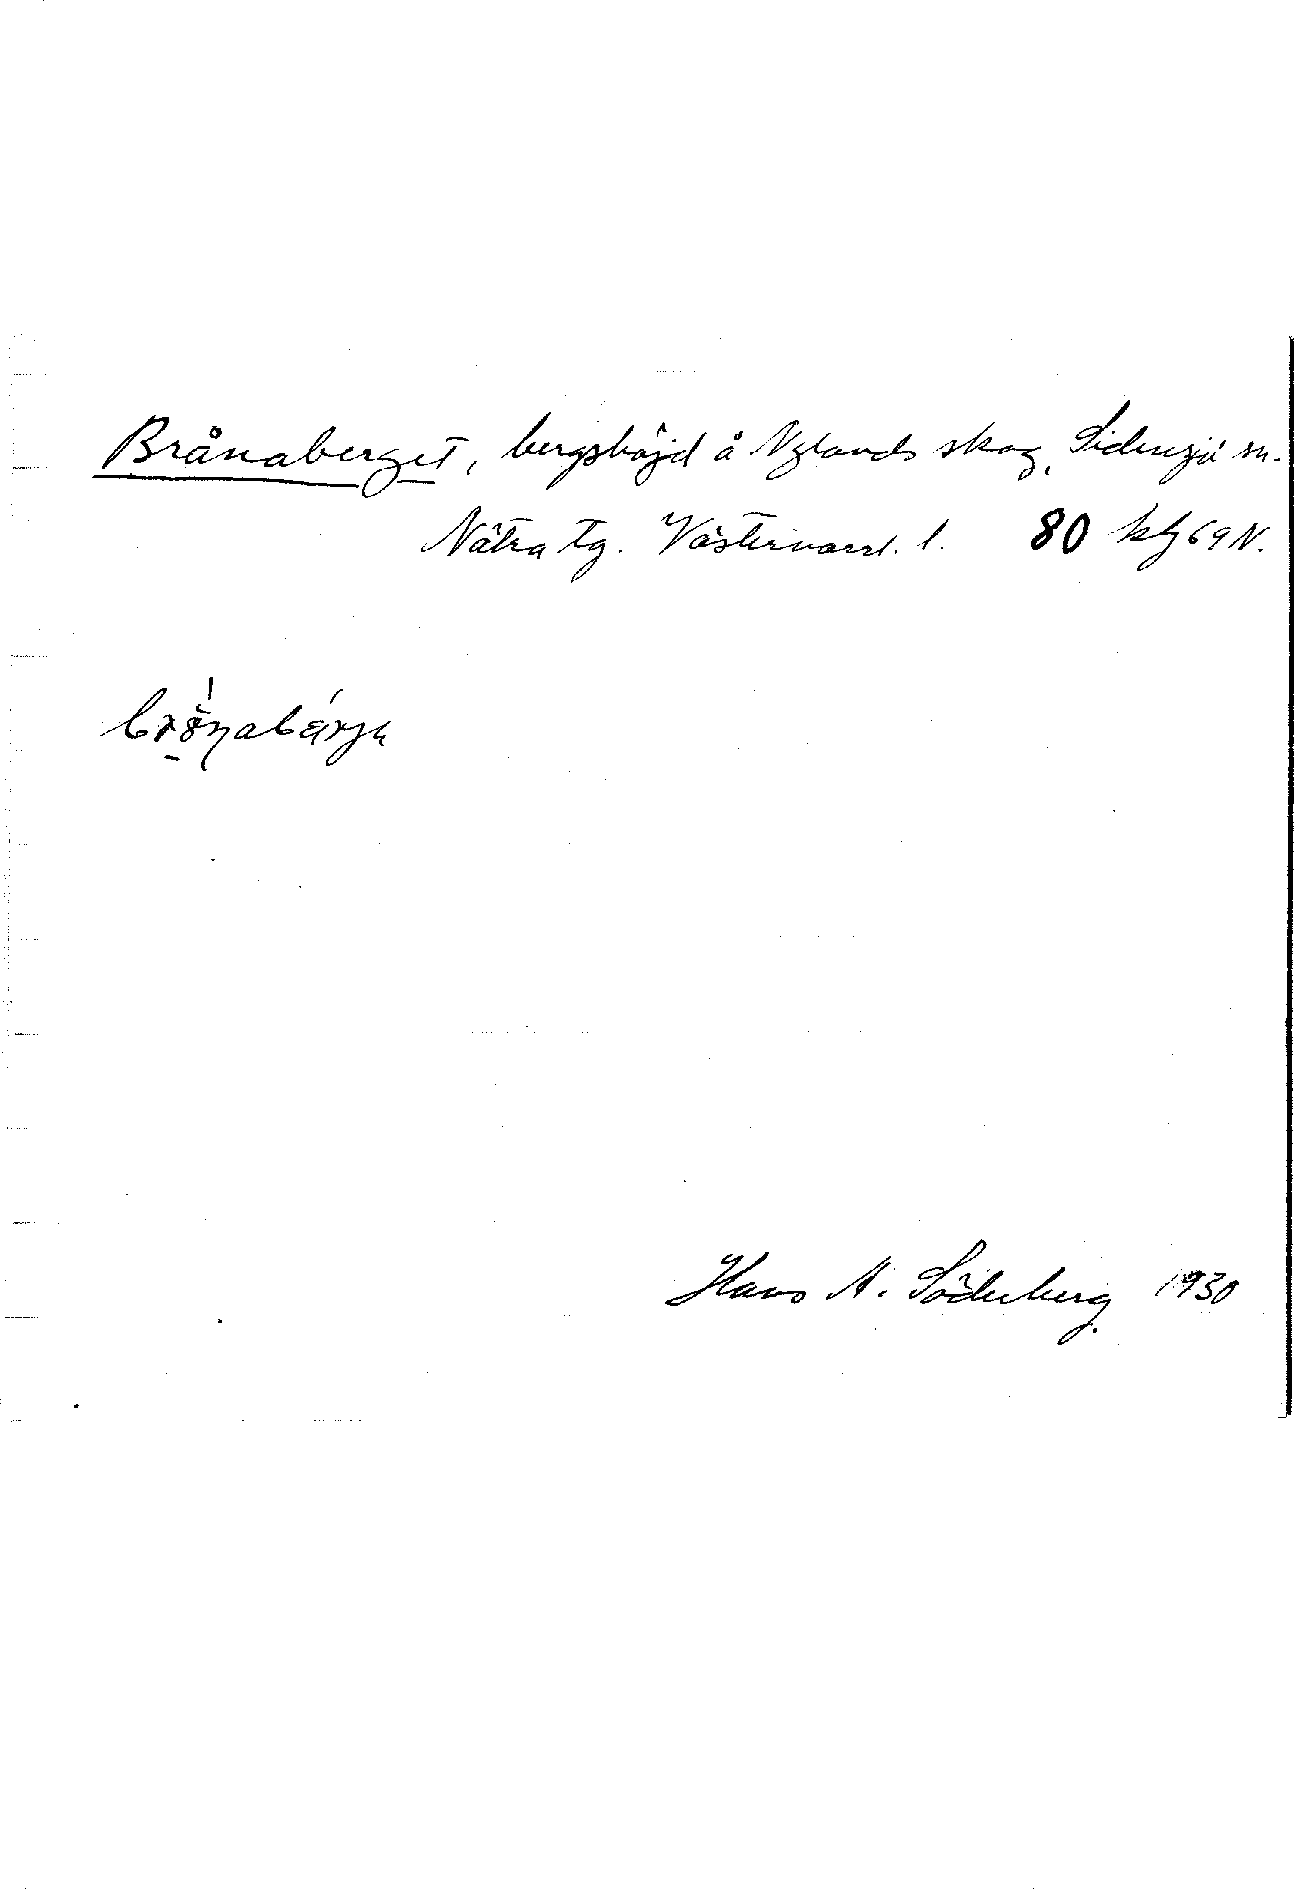 Brånaberget, bergshöjd å Nylands skog, Sidensjö sn.
Nätra tg. Västernorrl. l. 80
Hans A. Söderberg 1930